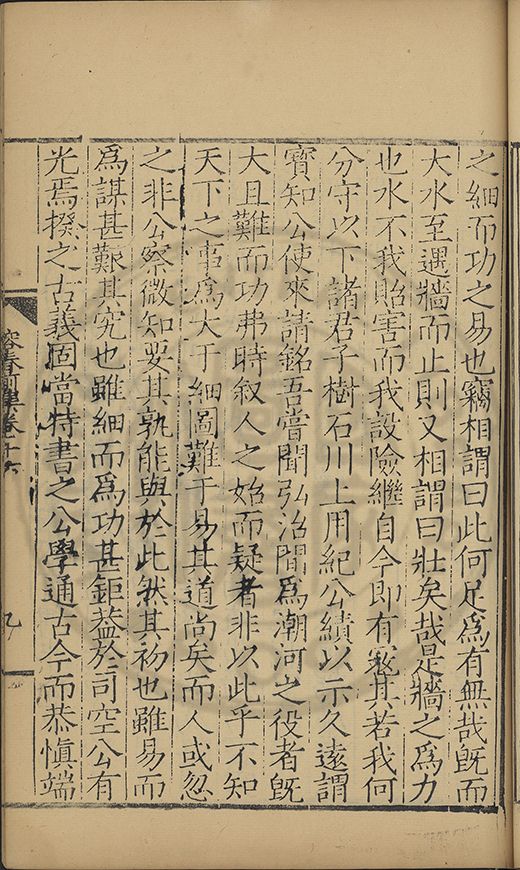 之細而功之易也竊相謂曰此何足為有無哉既而
大水至遇牆而止則又相謂曰壯矣哉是牆之為力
也水不我貽害而我設險繼自今即有寇其若我何
分守以下諸君子樹石川上用紀公績以示久遠謂
寶知公使來請銘吾嘗聞弘治間為潮河之役者既
大且難而功弗時叙人之始而疑者非以此乎不知
天下之事為大于細圖難于易其道尚矣而人或忽
之非公察微知要其孰能與於此然其初也雖易而
為謀甚艱其究也雖細而為功甚鉅葢於司空公有
光焉揆之古義固當特書之公學通古今而恭慎端
容春前集卷十六
九